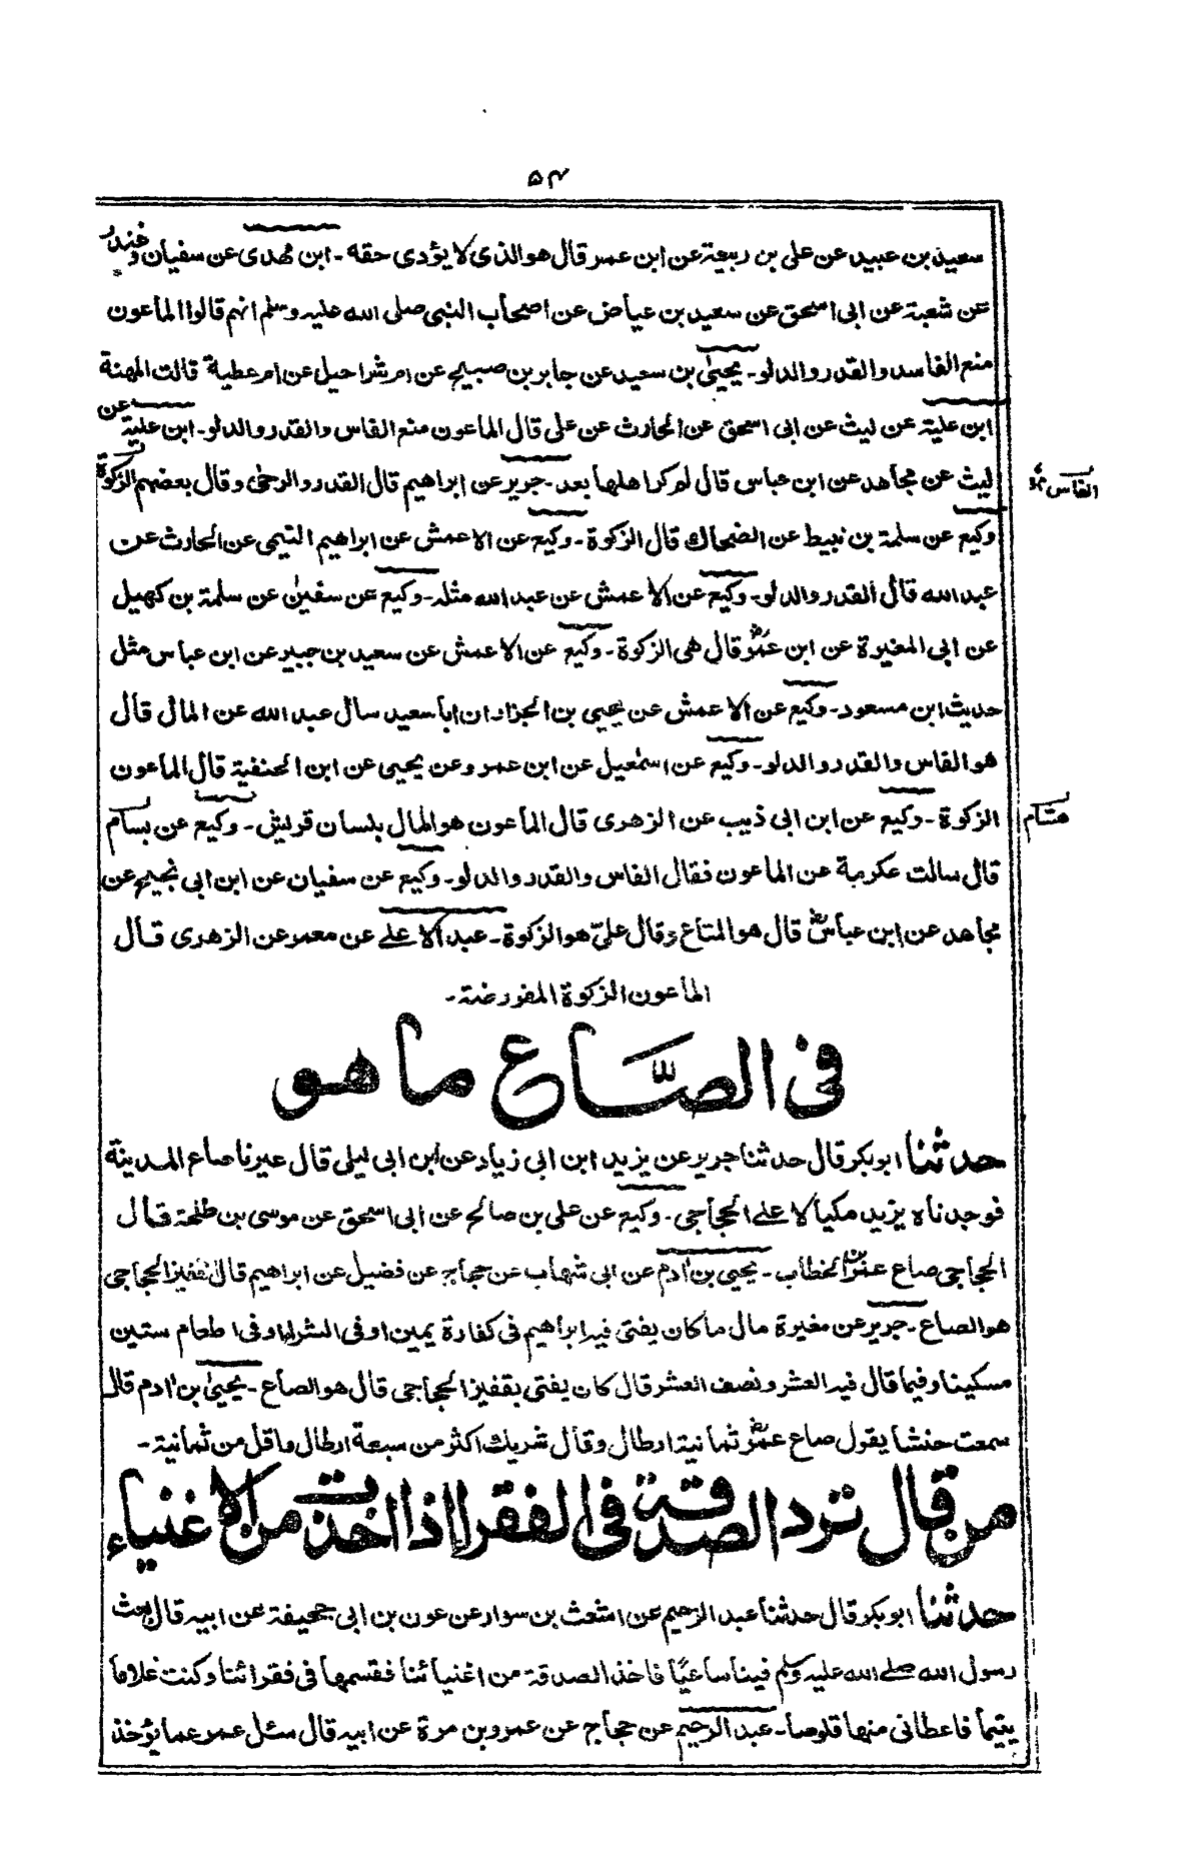 ۵۴
سعيد بن عبيد عن علی بن ربيعة عن ابن عمر قال هو الذی لا يؤدی حقه ـ ابن مهدی عن سفيان وغندر
عن شعبة عن ابی اسحق عن سعيد بن عياض عن اصحاب النبی صلی الله عليه وسلم انهم قالوا الماعون
منع الفاسد والقدر والدلو ـ يحيیٰ بن سعيد عن جابر بن صبيح عن ام شراحيل عن ام عطية قالت المهنة
ابن علية عن ليث عن ابی اسحق عن الحارث عن علی قال الماعون منع الفاس والقدر والدلو ـ ابن علية عن
ليث عن مجاهد عن ابن عباس قال لم كراهلها بعد ـ جرير عن ابراهيم قال القدر والرحیٰ وقال بعضهم الزكوة
الفاس
وكيع عن سلمة بن نبيط عن الضحاك قال الزكوة ـ وكيع عن الاعمش عن ابراهيم التيمی عن الحارث عن
عبد الله قال القدر والدلو ـ وكيع عن الاعمش عن عبد الله مثله ـ وكيع عن سفين عن سلمة بن كهيل
عن ابی المغيرة عن ابن عمر قال هی الزكوة ـ وكيع عن الاعمش عن سعيد بن جبير عن ابن عباس مثل
حديث ابن مسعود ـ وكيع عن الاعمش عن يحيی بن الجزار ان ابا سعيد سال عبد الله عن المال قال
هو الفاس والقدر والدلو ـ وكيع عن اسمٰعيل عن ابن عمر وعن يحيی عن ابن الحنفية قال الماعون
الزكوة ـ وكيع عن ابن ابی ذيب عن الزهری قال الماعون هو المال بلسان قريش ـ وكيع عن بسام
هشام
قال سالت عكرمة عن الماعون فقال الفاس والقدر والدلو ـ وكيع عن سفيان عن ابن ابی نجيح عن
مجاهد عن ابن عباسؓ قال هو المتاع وقال علیّ هو الزكوة ـ عبد الاعلے عن معمر عن الزهری قال
الماعون الزكوة المفروضة ـ
فی الصَّاع ما هو
حدثنا ابو بكر قال حدثنا جرير عن يزيد ابن ابی زياد عن ابن ابی ليلی قال عيرنا صاع المدينة
فوجدناه يزيد مكيالا علے الحجاجی ـ وكيع عن علی بن صالح عن ابی اسحق عن موسی بن طلحة قال
الحجاجی صاع عمر بن الخطاب ـ يحيی بن اٰدم عن ابی شهاب عن حجاج عن فضيل عن ابراهيم قال القفيز الحجاجی
هو الصاع ـ جرير عن مغيرة مال ما كان يفتی فيه ابراهيم فی كفارة يمين او فی الشراء او فی اطعام ستين
مسكينا وفيما قال فيه العشر ونصف العشر قال كان يفتی بقفيز الحجاجی قال هو الصاع ـ يحيیٰ بن اٰدم قال
سمعت حنشا يقول صاع عمرؓ ثمانية ارطال وقال شريك اكثر من سبعة ارطال واقل من ثمانية ـ
من قال ترد الصدقة فی الفقراء اذا اخذت من الاغنياء
حدثنا ابو بكر قال حدثنا عبد الرحيم عن اشعث بن سوار عن عون بن ابی جحيفة عن ابيه قال بعث
رسول الله صلے الله عليه وسلم فينا ساعيًا فاخذ الصدقة من اغنيائنا فقسمها فی فقرائنا وكنت غلاما
يتيما فاعطانی منها قلوصا ـ عبد الرحيم عن حجاج عن عمرو بن مرة عن ابيه قال سئل عمر عما يؤخذ